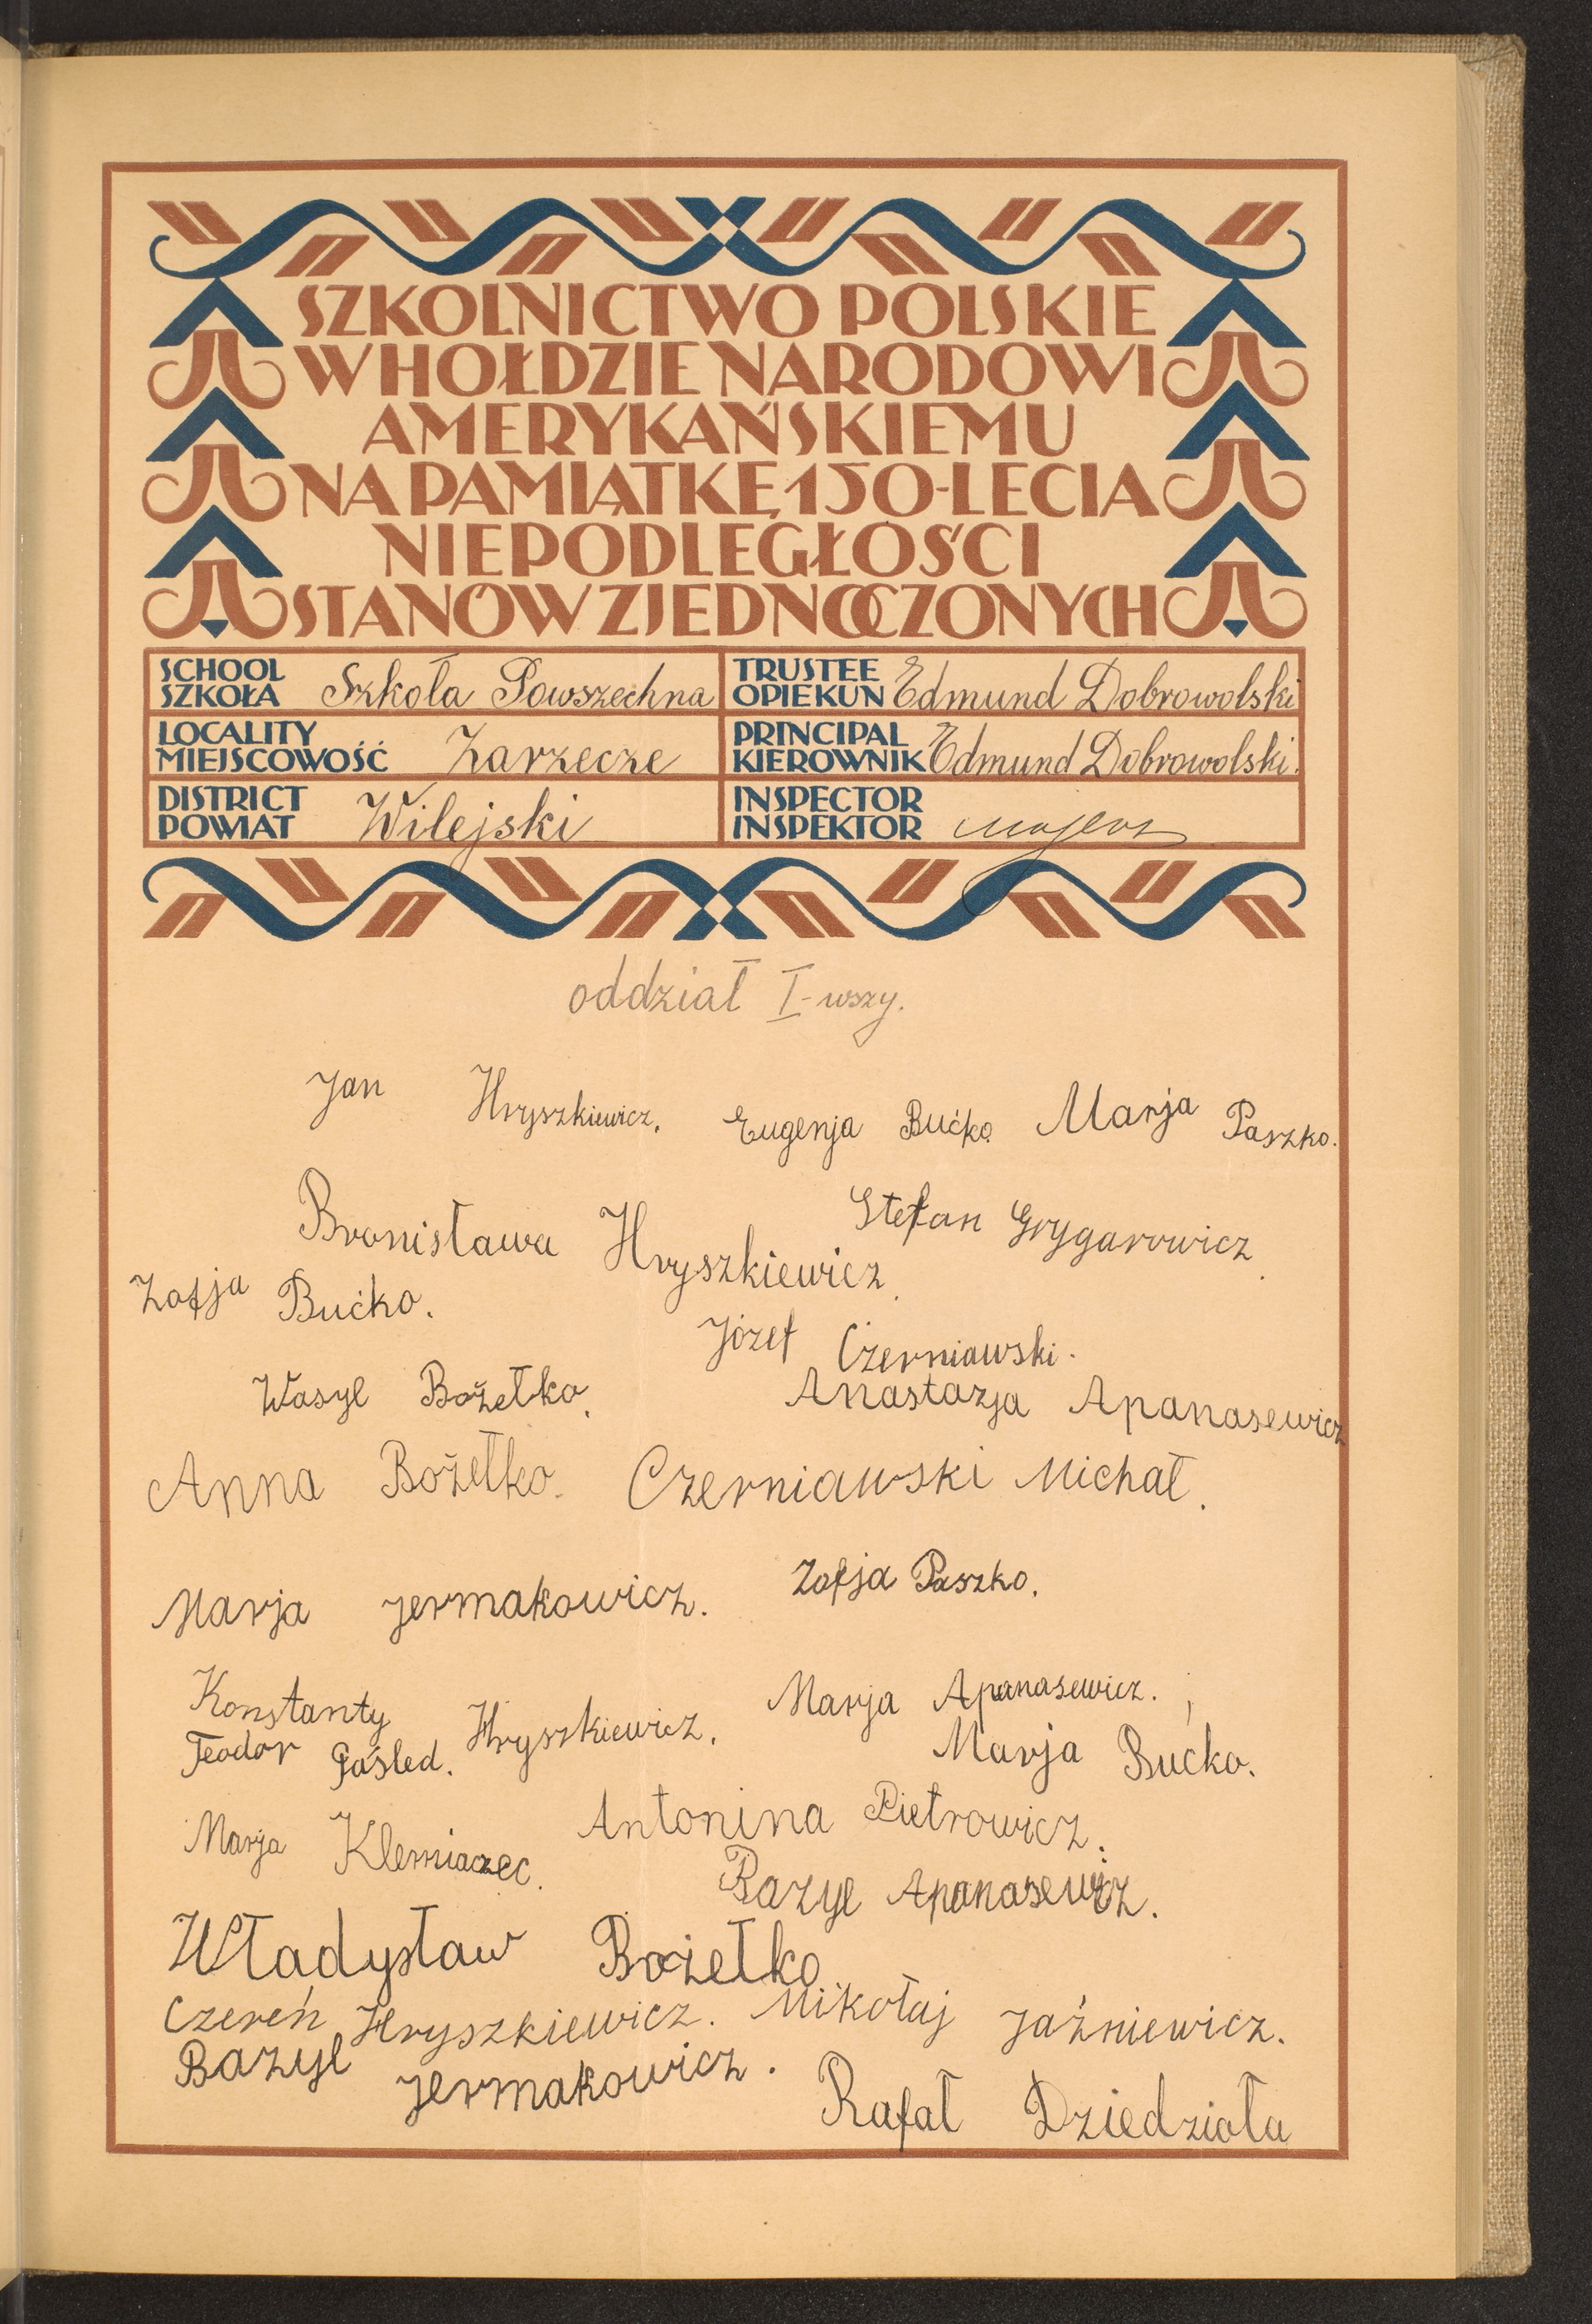 SZKOLNICTWO POLSKIE
W HOŁDZIE NARODOWI
AMERYKAŃSKIEMU
NA PAMIĄTKĘ 150-LECIA
NIEPODLEGŁOŚCI
STANÓW ZJEDNOCZONYCH
SCHOOL
SZKOŁA Szkoła Powszechna
TRUSTEE
OPIEKUN Edmund Dobrowolski
LOCALITY
MIEJSCOWOŚĆ Zarzecze
PRINCIPAL
KIEROWNIK Edmund Dobrowolski.
DISTRICT
POWIAT Wilejski
INSPECTOR
INSPEKTOR
oddział I-wszy.
Jan Hryszkiewicz. Eugenja Bućko Marja Paszko.
Bronisława Hryszkiewicz. Stefan Grygarowicz.
Zofja Bućko.
Józef Czerniawski.
Wasyl Bożełko. Anastazja Apanasewicz
Anna Bożełko. Czerniawski Michał.
Marja Jermakowicz. Zofja Paszko.
Konstanty Hryszkiewicz. Marja Apanasewicz.
Teodor Paśled. Marja Bućko.
Marja Antonina Pietrowicz.
Bazyl Apanasewicz.
Władysław Bożełko
Czereń Hryszkiewicz. Mikołaj Jaźniewicz.
Bazyl Jermakowicz.
Rafał Dziedzioła